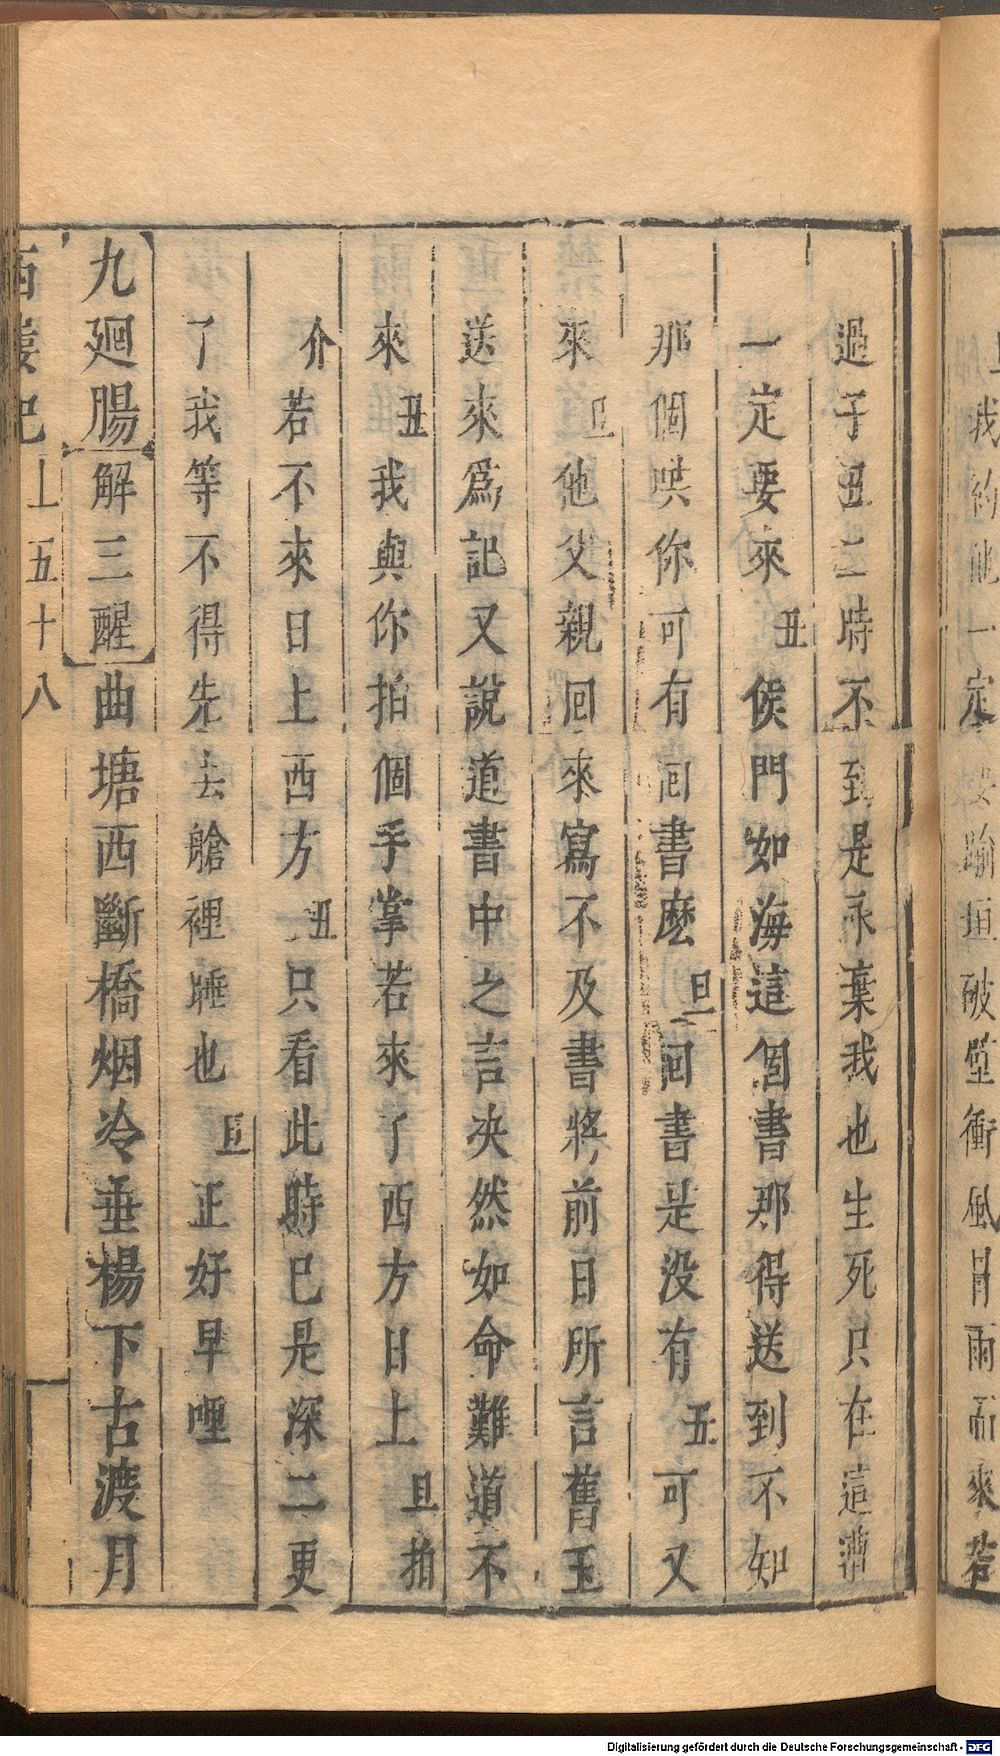 我約他一定踰垣破壁衝風冒雨而來若
過子丑二時不到是永棄我也生死只在這漕
一定要來丑侯門如海這個書那得送到不知
那個哄你可有囘書麽旦囘書是没有丑可又
來旦他父親囘來寫不及書將前日所言舊玉
送來爲記又說道書中之言決然如命難道不
來丑我與你拍個手掌若來了西方日上旦拍
介若不來日上西方丑只看此時已是深二更
了我等不得先去艙裡睡也旦正好早哩
九廻腸解三醒曲塘西斷橋烟冷垂楊下古渡月
西樓記上五十八
Digitalisierung gefördert durch die Deutsche Forschungsgemeinschaft - DFG